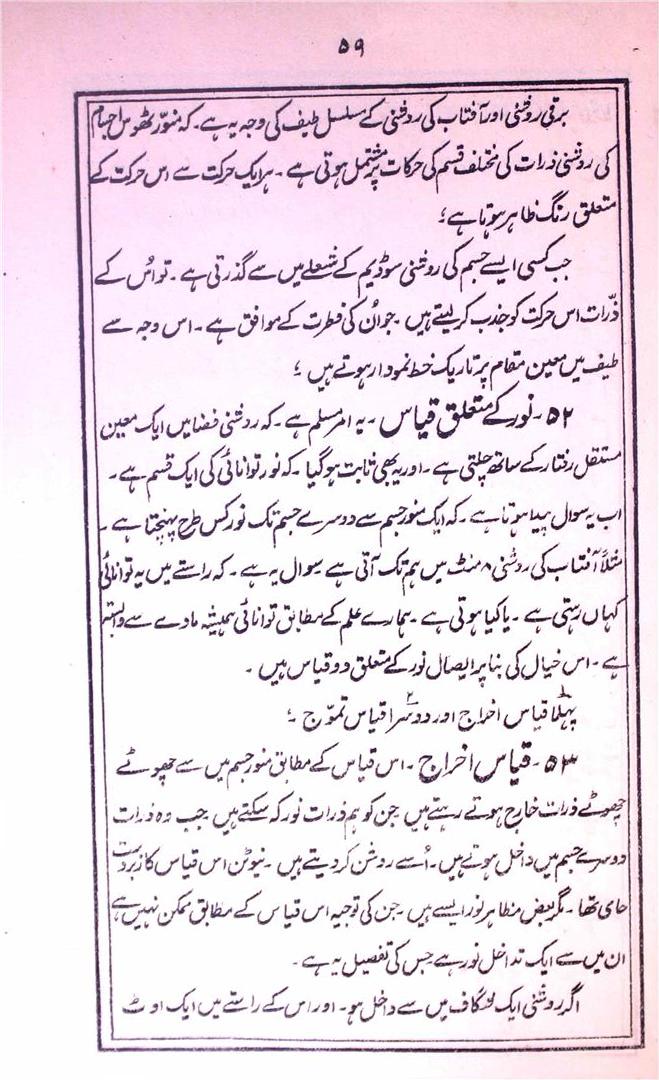 ۵۹
برقی روشنی اور آفتاب کی روشنی کے مسلسل طیف کی وجہ یہ ہے۔ کہ منوّر ٹھوس اجسام
کی روشنی ذرات کی مختلف قسم کی حرکات پر مشتمل ہوتی ہے۔ ہر ایک حرکت سے اس حرکت کے
متعلق رنگ ظاہر ہوتا ہے؛
جب کسی ایسے جسم کی روشنی سوڈیم کے شعلے میں سے گذرتی ہے۔ تو اُس کے
ذرّات اس حرکت کو جذب کر لیتے ہیں۔ جو اُن کی فطرت کے موافق ہے۔ اس وجہ سے
طیف میں معین مقام پر تاریک خط نمودار ہوتے ہیں؛
۵۲۔ نور کے متعلق قیاس۔ یہ امر مسلم ہے۔ کہ روشنی فضا میں ایک معین
مستقل رفتار کے ساتھ چلتی ہے۔ اور یہ بھی ثابت ہو گیا۔ کہ نور توانائی کی ایک قسم ہے۔
اب یہ سوال پیدا ہوتا ہے۔ کہ ایک منور جسم سے دوسرے جسم تک نور کس طرح پہنچتا ہے۔
مثلاً آفتاب کی روشنی ۸ منٹ میں ہم تک آتی ہے سوال یہ ہے۔ کہ راستے میں یہ توانائی
کہاں رہتی ہے۔ یا کیا ہوتی ہے۔ ہمارے علم کے مطابق توانائی ہمیشہ مادے سے وابستہ
ہے۔ اس خیال کی بنا پر ایصال نور کے متعلق دو قیاس ہیں۔
پہلا قیاس اخراج اور دوسرا ۲ قیاس تموّج؛
۵۳۔ قیاس اخراج۔ اس قیاس کے مطابق منور جسم میں سے چھوٹے
چھوٹے ذرات خارج ہوتے رہتے ہیں جن کو ہم ذرات نور کہہ سکتے ہیں جب وہ ذرات
دوسرے جسم میں داخل ہوتے ہیں۔ اُسے روشن کر دیتے ہیں۔ نیوٹن اس قیاس کا زبردست
حامی تھا۔ مگر بعض مظاہر نور ایسے ہیں جن کی توجیہ اس قیاس کے مطابق ممکن نہیں ہے
ان میں سے ایک تداخل نور ہے جس کی تفصیل یہ ہے۔
اگر روشنی ایک شگاف میں سے داخل ہو۔ اور اس کے راستے میں ایک اوٹ